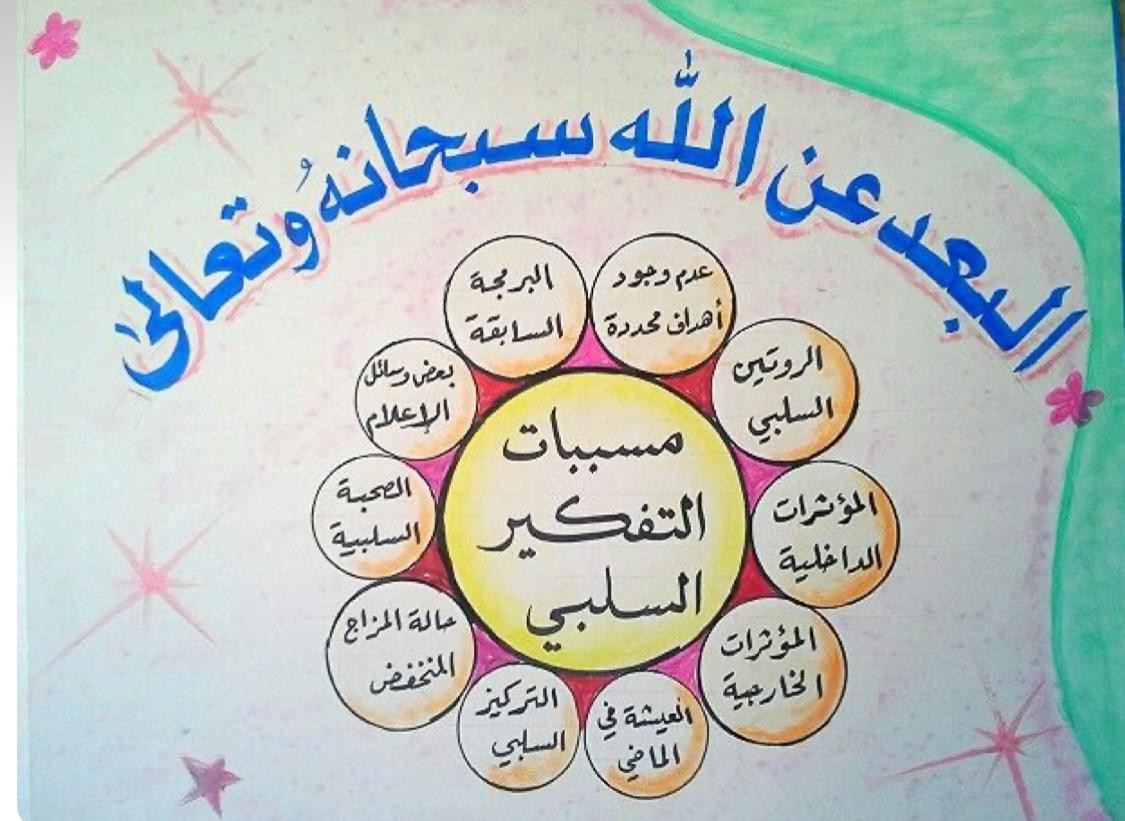 البعد عن الله سبحانهُ وتعالىٰ
مسببات
التفكير
السلبي
عدم وجود
أهداف محددة
الروتين
السلبي
المؤثرات
الداخلية
المؤثرات
الخارجية
العيشة في
الماضي
التركيز
السلبي
حالة المزاج
المنخفض
الصحبة
السلبية
بعض وسائل
الإعلام
البرمجة
السابقة